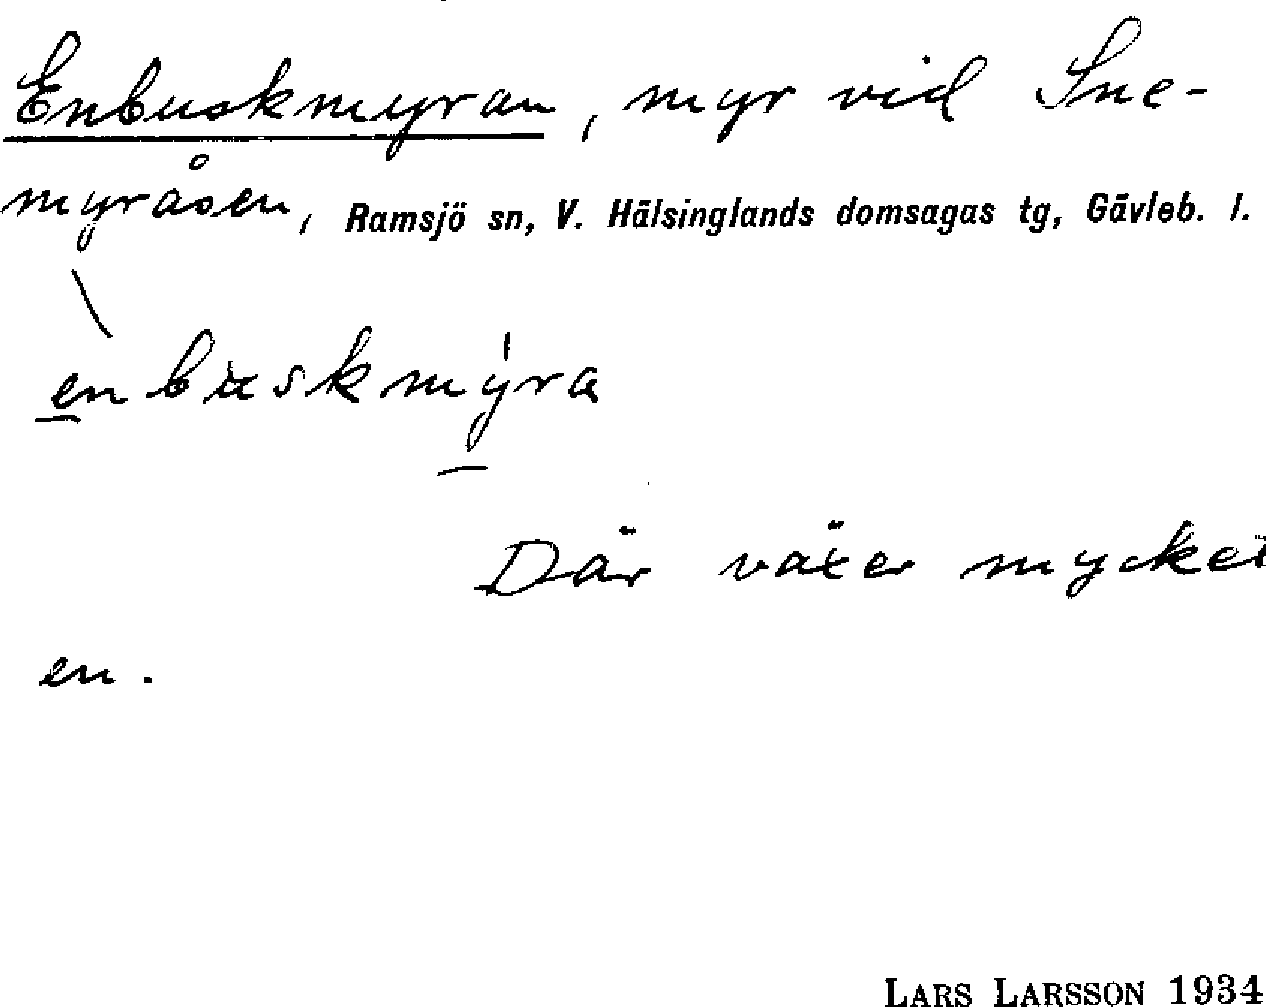 Enbuskmyran, myr vid Sne-
myråsen, Ramsjö sn, V. Hälsinglands domsagas tg, Gävleb. l.
enbuskmyra
Där växer mycket
en.
LARS LARSSON 1934